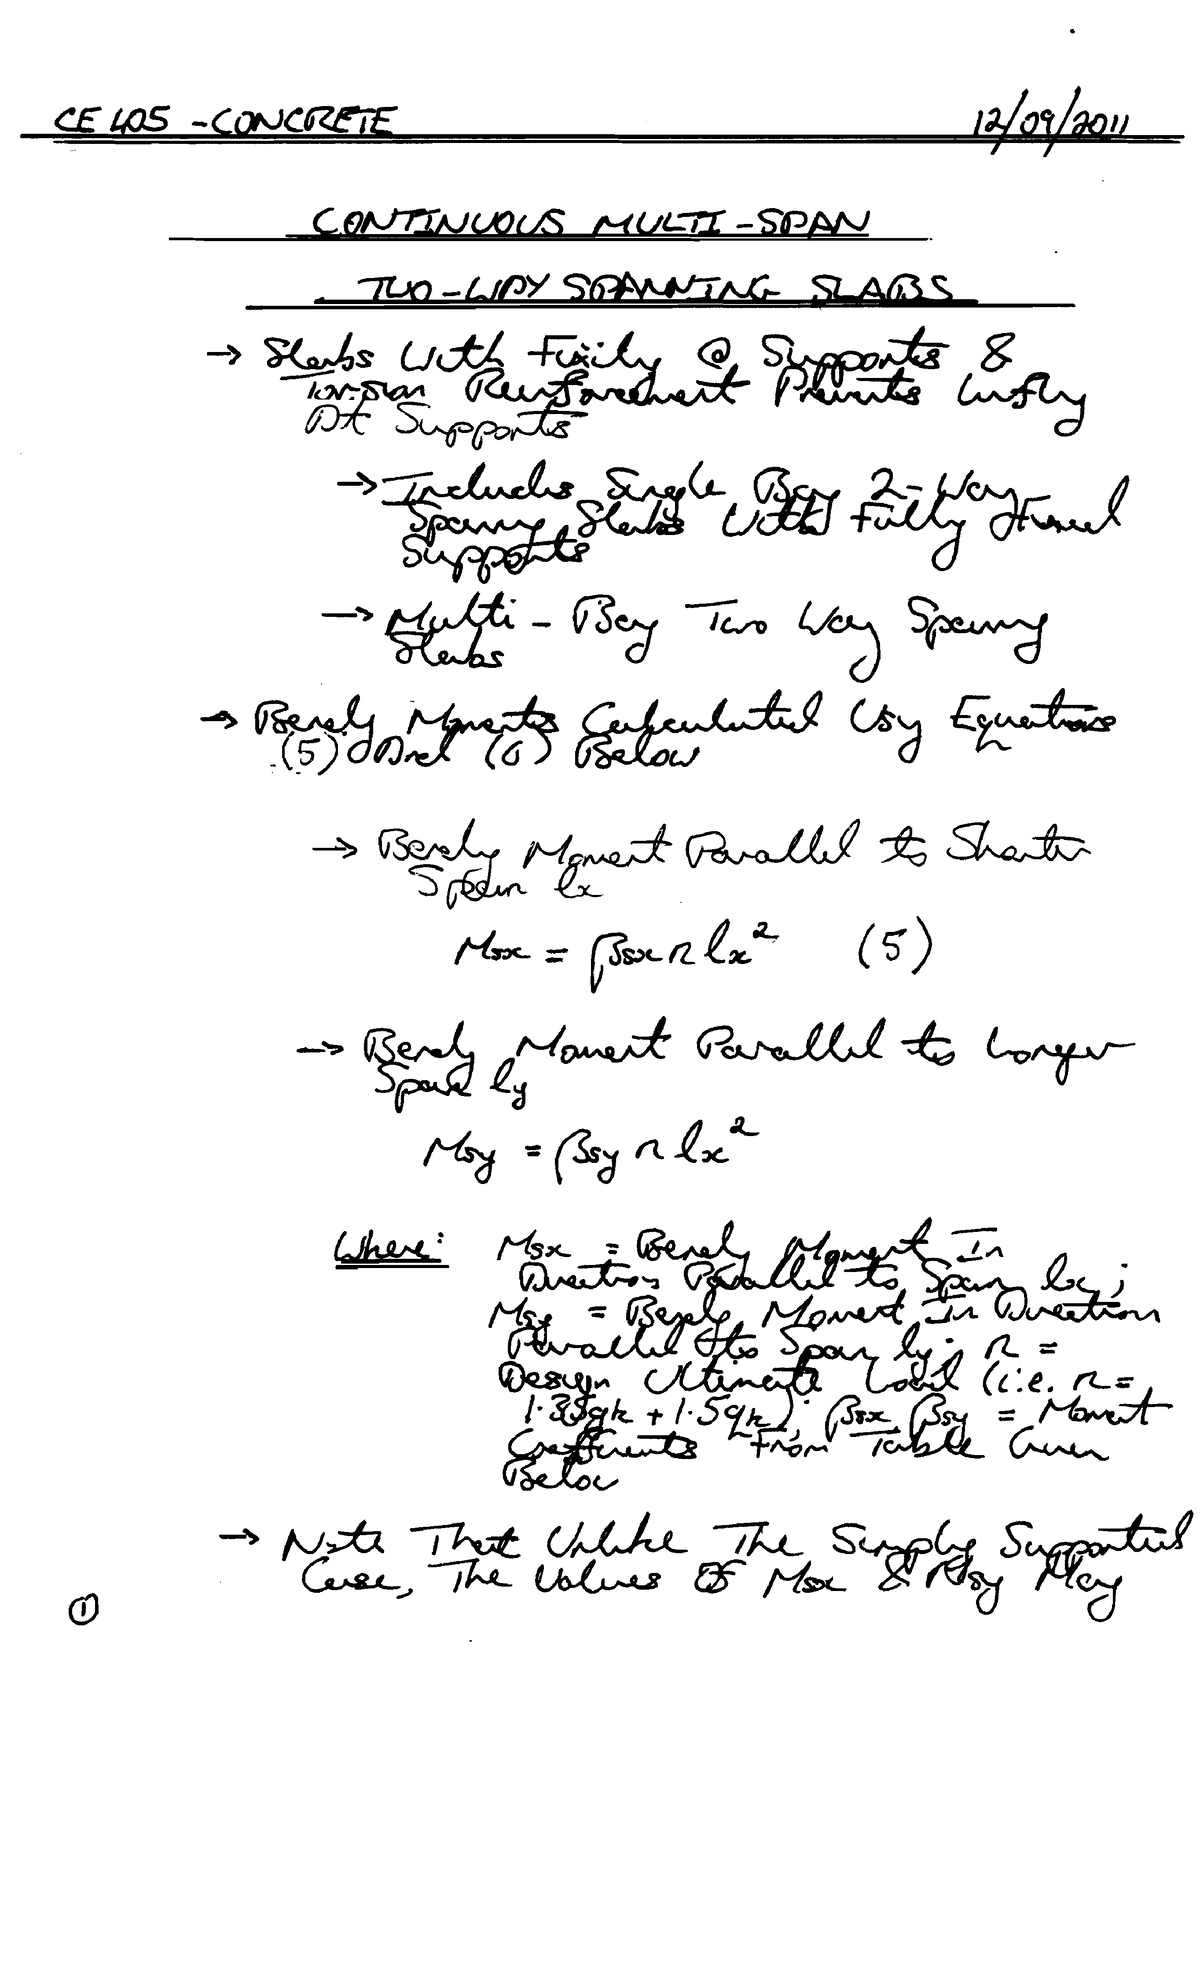 CE405 - CONCRETE 12/09/2011
CONTINUOUS MULTI-SPAN
TWO-WAY SPANNING SLABS
→ Slabs With Fixity @ Supports &
Torsion Reinforcement Prevents Uplift
At Supports
→ Includes Single Bay 2-Way
Spanning Slabs With Fully Fixed
Supports
→ Multi-Bay Two Way Spanning
Slabs
→ Bending Moments Calculated Using Equations
(5) And (6) Below
→ Bending Moment Parallel to Shorter
Span lx
Msx = βsx n lx² (5)
→ Bending Moment Parallel to Longer
Span ly
Msy = βsy n lx²
Where: Msx = Bending Moment In
Direction Parallel to Span lx;
Msy = Bending Moment In Direction
Parallel to Span ly; n =
Design Ultimate Load (i.e. n =
1.35gk + 1.5qk); βsx, βsy = Moment
Coefficients From Table Given
Below
→ Note That Unlike The Simply Supported
Case, The Values Of Msx & Msy May
①